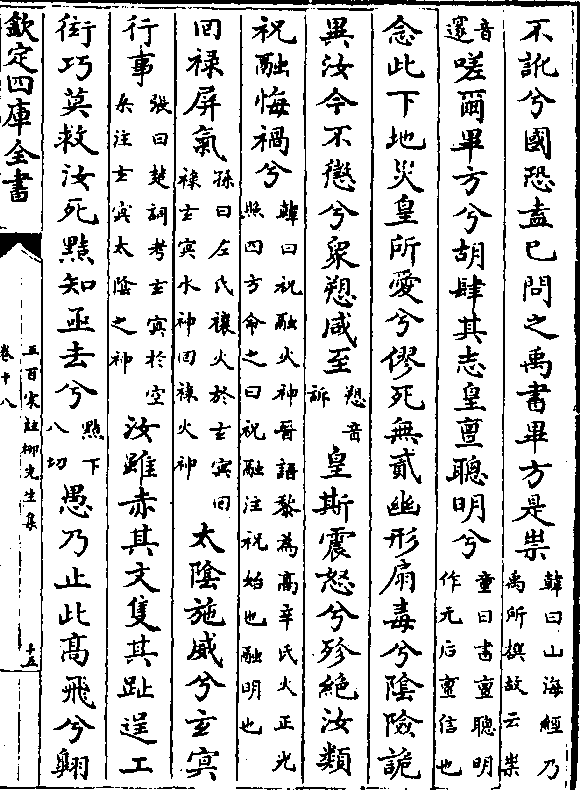 不訛兮國恐盍已問之禹書畢方是祟韓曰山海經乃禹所撰故云祟
音邃嗟爾畢方兮胡肆其志皇亶聰明兮童曰書亶聰明作元后亶信也
念此下地災皇所愛兮僇死無貳幽形扇毒兮陰險詭
異汝今不懲兮衆愬咸至愬音訴皇斯震怒兮殄絕汝類
祝融悔禍兮韓曰祝融火神晉語黎為高辛氏火正光照四方命之曰祝融注祝始也融明也
回祿屏氣孫曰左氏禳火於玄冥回祿玄冥水神回祿火神太陰施威兮玄冥
行事張曰楚詞考玄冥於空桒注玄冥太陰之神汝雖赤其文隻其趾逞工
衒巧莫救汝死黠知亟去兮黠下八切愚乃止此高飛兮翺
欽定四庫全書
五百家註柳先生集
卷十八
十五